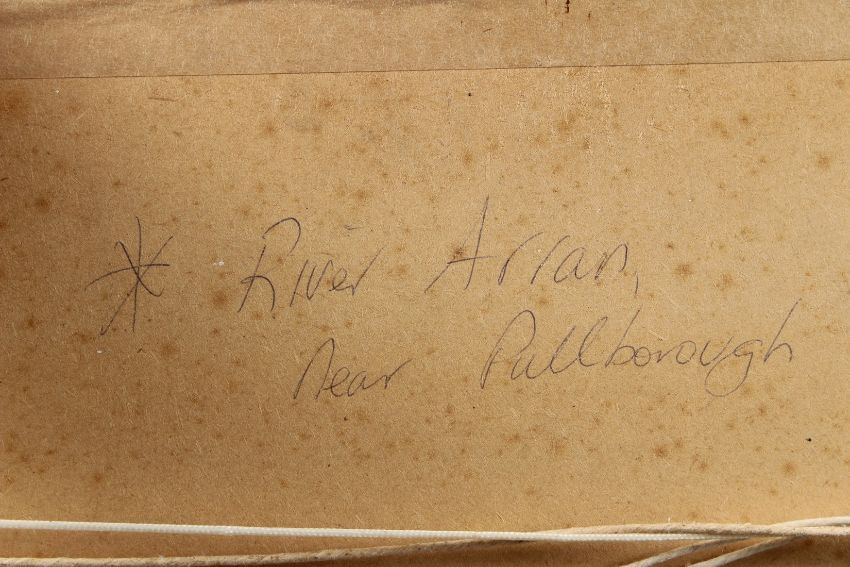 * River Arran,
near Pullborough